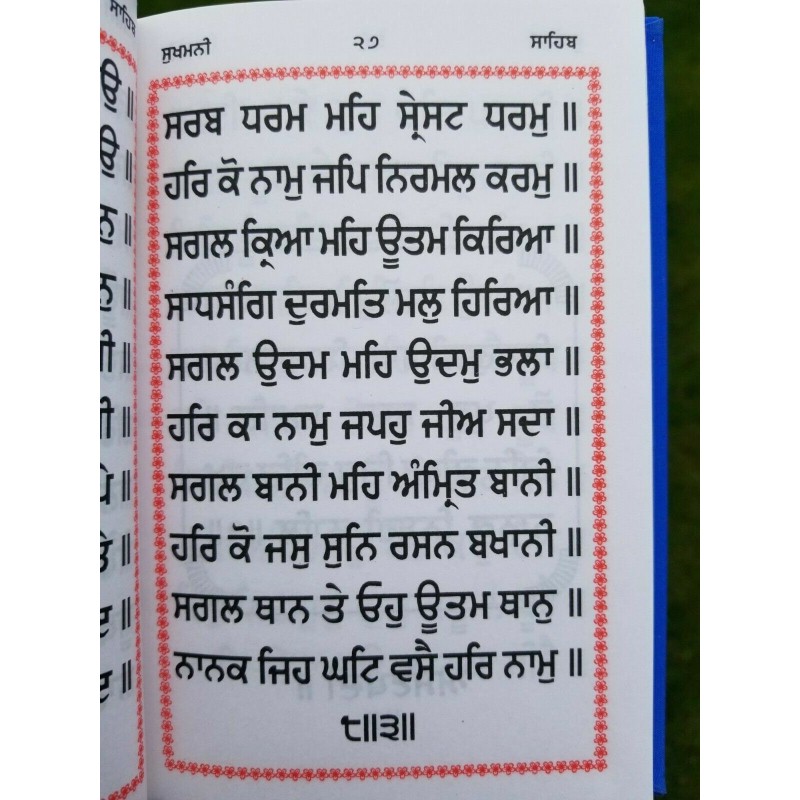 ਸਾਹਿਬ
ਸੁਖਮਨੀ ੨੭ ਸਾਹਿਬ
ਸਰਬ ਧਰਮ ਮਹਿ ਸ੍ਰੇਸਟ ਧਰਮੁ ॥
ਹਰਿ ਕੋ ਨਾਮੁ ਜਪਿ ਨਿਰਮਲ ਕਰਮੁ ॥
ਸਗਲ ਕ੍ਰਿਆ ਮਹਿ ਊਤਮ ਕਿਰਿਆ ॥
ਸਾਧਸੰਗਿ ਦੁਰਮਤਿ ਮਲੁ ਹਿਰਿਆ ॥
ਸਗਲ ਉਦਮ ਮਹਿ ਉਦਮੁ ਭਲਾ ॥
ਹਰਿ ਕਾ ਨਾਮੁ ਜਪਹੁ ਜੀਅ ਸਦਾ ॥
ਸਗਲ ਬਾਨੀ ਮਹਿ ਅੰਮ੍ਰਿਤ ਬਾਨੀ ॥
ਹਰਿ ਕੋ ਜਸੁ ਸੁਨਿ ਰਸਨ ਬਖਾਨੀ ॥
ਸਗਲ ਥਾਨ ਤੇ ਓਹੁ ਊਤਮ ਥਾਨੁ ॥
ਨਾਨਕ ਜਿਹ ਘਟਿ ਵਸੈ ਹਰਿ ਨਾਮੁ ॥
੮॥੩॥